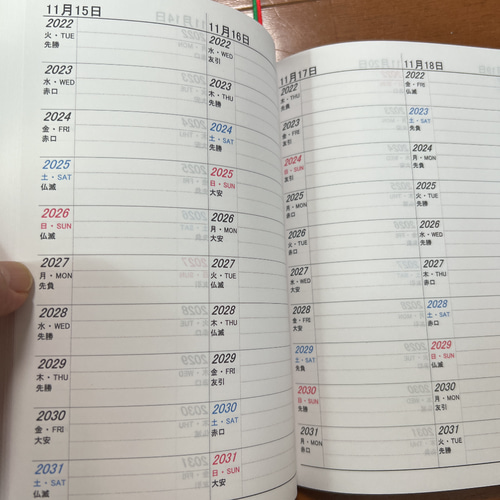 11月15日
2022
火・TUE
先勝
2023
水・WED
赤口
2024
金・FRI
赤口
2025
土・SAT
仏滅
2026
日・SUN
仏滅
2027
月・MON
先負
2028
水・WED
先勝
2029
木・THU
先勝
2030
金・FRI
大安
2031
土・SAT
仏滅
11月16日
2022
水・WED
友引
2023
木・THU
先勝
2024
土・SAT
先勝
2025
日・SUN
大安
2026
月・MON
大安
2027
火・TUE
仏滅
2028
木・THU
仏滅
2029
金・FRI
友引
2030
土・SAT
赤口
2031
日・SUN
大安
11月17日
2022
木・THU
先負
2023
金・FRI
友引
2024
日・SUN
友引
2025
月・MON
赤口
2026
火・TUE
赤口
2027
水・WED
大安
2028
金・FRI
大安
2029
土・SAT
先負
2030
日・SUN
先勝
2031
月・MON
赤口
11月18日
2022
金・FRI
仏滅
2023
土・SAT
先負
2024
月・MON
先負
2025
火・TUE
先勝
2026
水・WED
先勝
2027
木・THU
赤口
2028
土・SAT
赤口
2029
日・SUN
仏滅
2030
月・MON
友引
2031
火・TUE
先勝